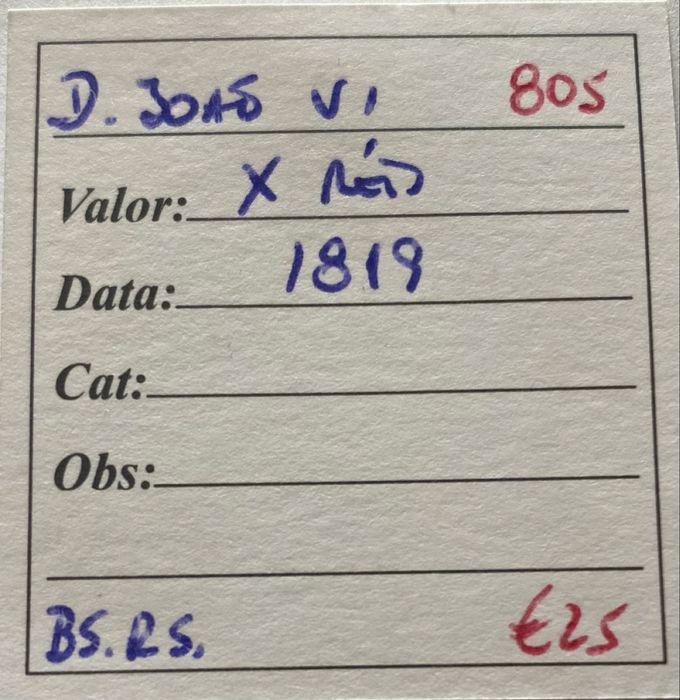 D. JOAÕ VI 805
Valor: X RÉIS
Data: 1819
Cat:
Obs:
BS. R S. €25